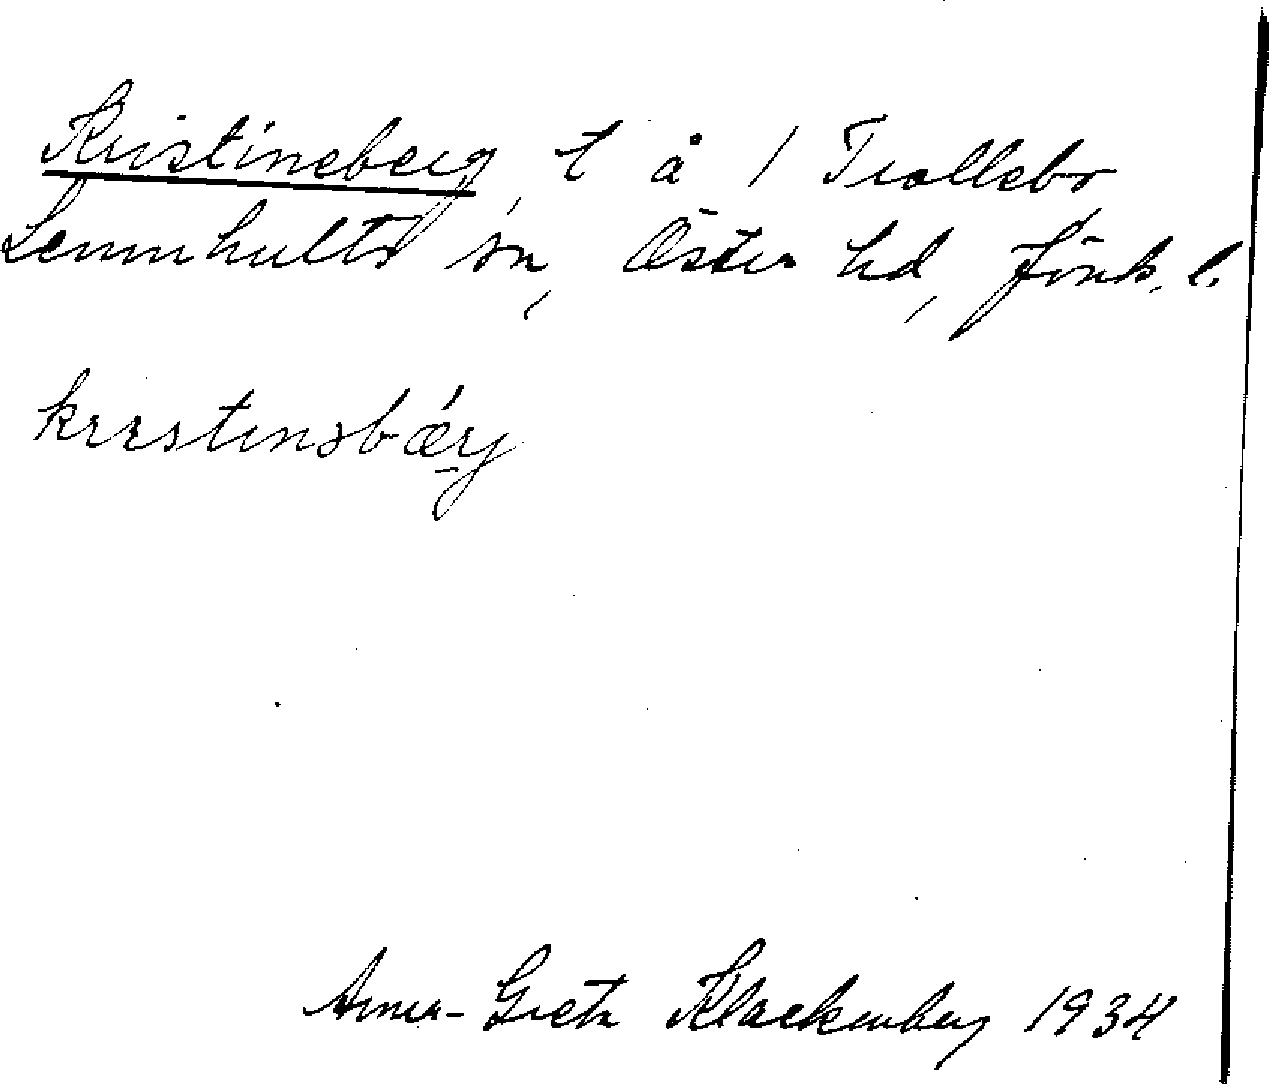 Kristineberg t å 1 Trollebo
Lemnhults sn, Öster hd, Jönk. l.
krɪstɪnəbǽrj
Anna-Greta Klackenberg 1934